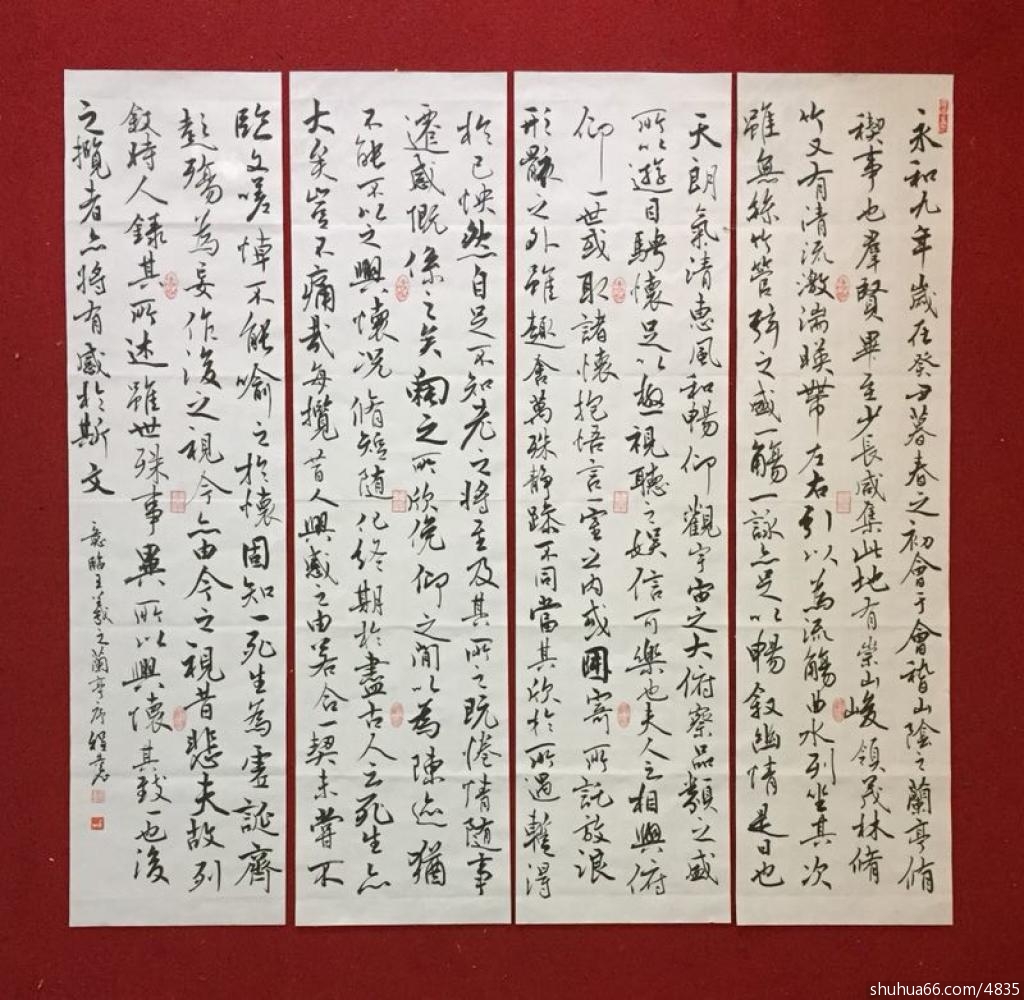 永和九年歲在癸丑暮春之初會于會稽山陰之蘭亭脩
禊事也羣賢畢至少長咸集此地有崇山峻領茂林脩
竹又有清流激湍暎帶左右引以為流觴曲水列坐其次
雖無絲竹管弦之盛一觴一詠亦足以暢敘幽情是日也
天朗氣清惠風和暢仰觀宇宙之大俯察品類之盛
所以遊目騁懷足以極視聽之娛信可樂也夫人之相與俯
仰一世或取諸懷抱悟言一室之內或因寄所託放浪
形骸之外雖趣舍萬殊靜躁不同當其欣於所遇蹔得
於己怏然自足不知老之將至及其所之既惓情隨事
遷感慨係之矣向之所欣俛仰之閒以為陳迹猶
不能不以之興懷況脩短隨化終期於盡古人云死生亦
大矣豈不痛哉每攬昔人興感之由若合一契未嘗不
臨文嗟悼不能喻之於懷固知一死生為虛誕齊
彭殤為妄作後之視今亦由今之視昔悲夫故列
敘時人錄其所述雖世殊事異所以興懷其致一也後
之攬者亦將有感於斯文
意臨王羲之蘭亭序程意
shuhua66.com/4835